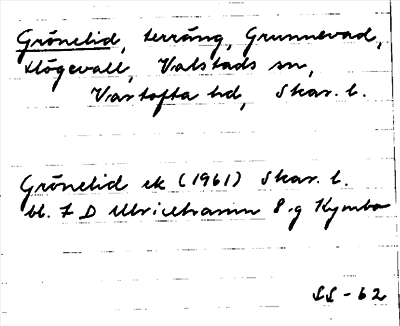 Grönelid, terräng, Grunnevad,
Högevall, Valstads sn,
Vartofta hd, Skar. l.
Grönelid ek (1961) Skar. l.
bl. 7 D Ulricehamn 8 g Kymbo
SS - 62